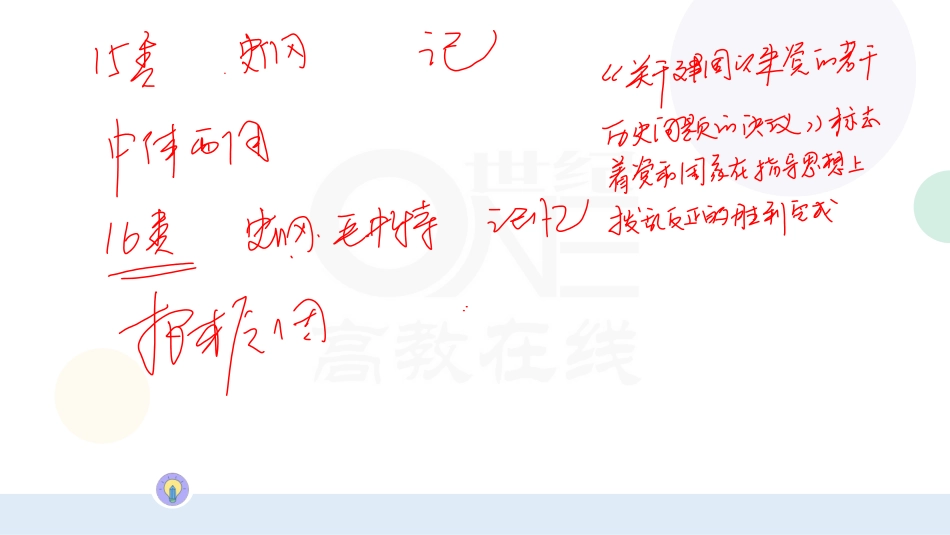 15类 史纲 记
中体西用
16类 史纲.毛中特 记忆
《关于建国以来党的若干
历史问题的决议》标志
着党和国家在指导思想上
拨乱反正的胜利完成
世纪
ONE
高教在线